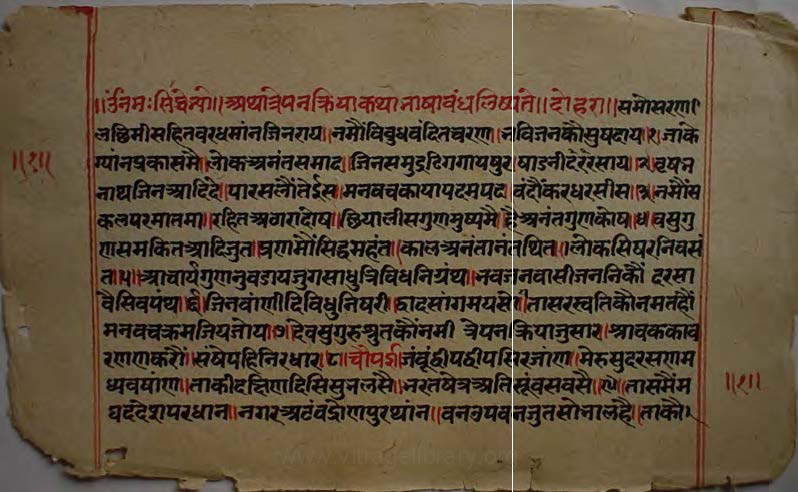 ॥उंनमः सिद्धेभ्यो॥ अथ त्रेपनक्रियाकथा भाषाबंध लिष्यते॥ दोहरा॥ समोसरण।
लछिमीसहित वरधमांनजिनराय॥ नमौं विबुधवंदितचरण॥ भविजनकौ सुषदाय॥१॥ जाके
ग्यांनप्रकासमै॥ लोक अनंत समाद॥ जिनसमुद्र ढिग गायपुर॥
नाथजिन आदिदे॥ पारसलौं तेईस॥ मनवचकाया पदमपद॥ वंदौं करधरसीस॥३॥ नमौं स
कलपरमातमा॥ रहित अठारा दोष॥ छियालीसगुण मुष्यमै॥ है अनंतगुणकोष॥४॥ वसुगु
णसमकित आदिजुत॥ प्रणमौं सिद्धमहंत॥ काल अनंतानंत थित॥ लोकसिषर निवसं
त॥५॥ आचार्यगुण नुवझाय जुग साधु त्रिविध निग्रंथ॥ भवजनवासी जननिकौं दरसा
वै सिवपंथ॥६॥ जिनवांणी दिविधुनि षरी॥ द्वादसांगमय सोय॥ ता सरस्वतिकौं नमत हौं॥
मनवचक्रम जिय जोय॥७॥ देव सुगुरु श्रुतकौं नमी त्रेपनक्रिया जु सार॥ श्रावककी व
रणण करौं॥ संषेपहि निरधार॥८॥ चौपई॥ जंबूद्वीप द्वीपसिर जांण॥ मेरु सुदरसण म
ध्य वषांण॥ ताकी दक्षिण दिसि सुभ लसै॥ भरतषेत्र अति सूं वसवसै॥९॥ तामै म
घदेश परधान॥ नगर अठंवद्रोणपुर थांन॥ वन उपवनजुत सोभा लहै॥ ताकौ।
॥१॥
॥१॥